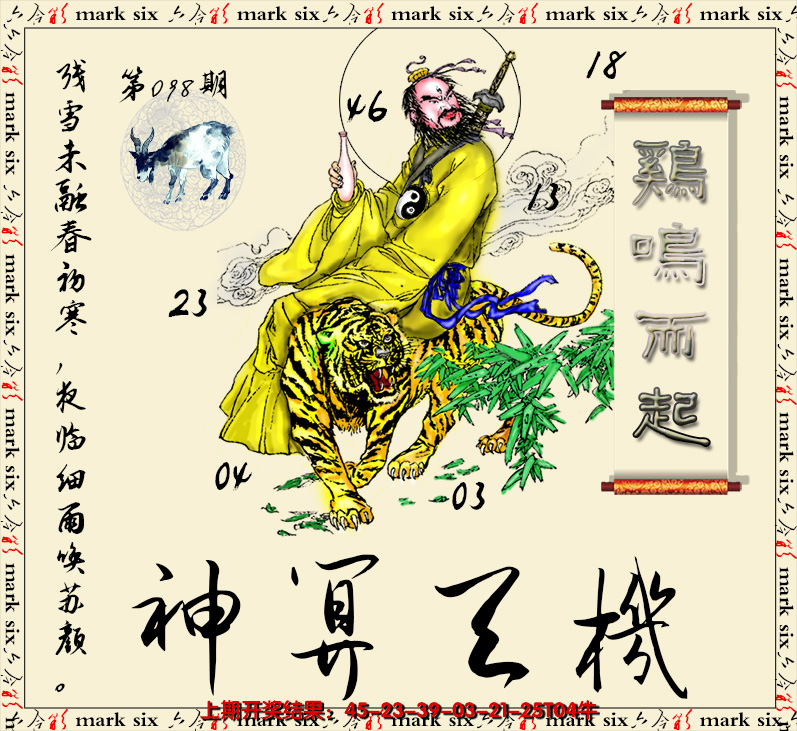 六合彩 mark six 六合彩 mark six 六合彩 mark six 六合彩 mark six 六合彩
第098期
18
46
13
23
04
03
鷄鳴而起
残雪未融春初寒,夜临细雨唤苏颜。
神算天機
上期开奖结果:45-23-39-03-21-25T04牛
六合彩 mark six 六合彩 mark six 六合彩 mark six 六合彩 mark six 六合彩